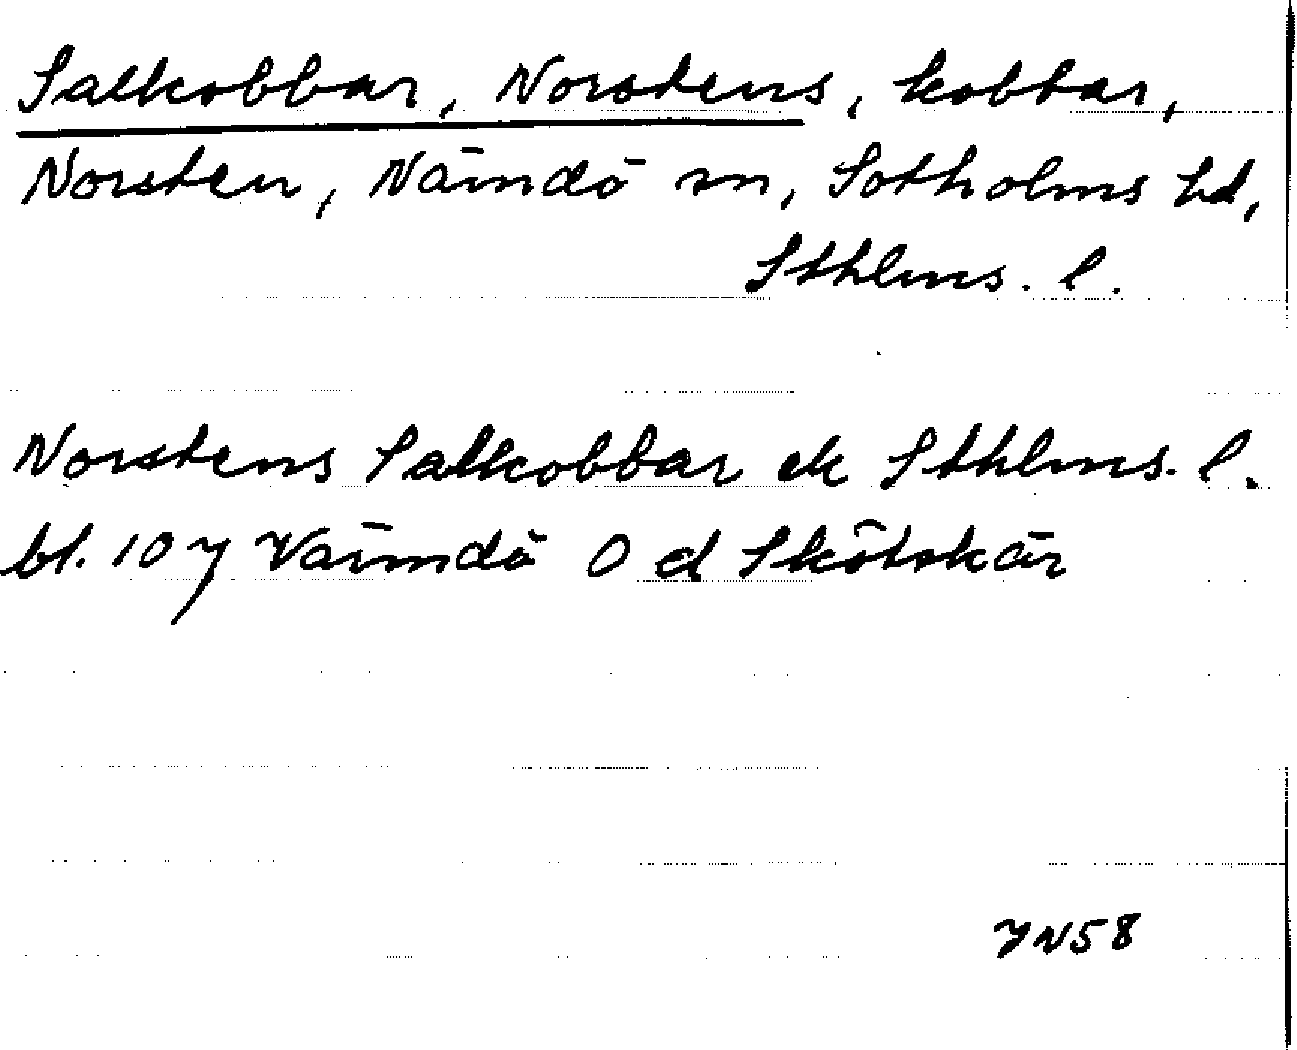 Salkobbar, Norstens, kobbar,
Norsten, Nämdö sn, Sotholms hd,
Sthlms. l.
Norstens Salkobbar ek Sthlms. l.
bl. 10 y Värmdö O d Skötskär
YN58